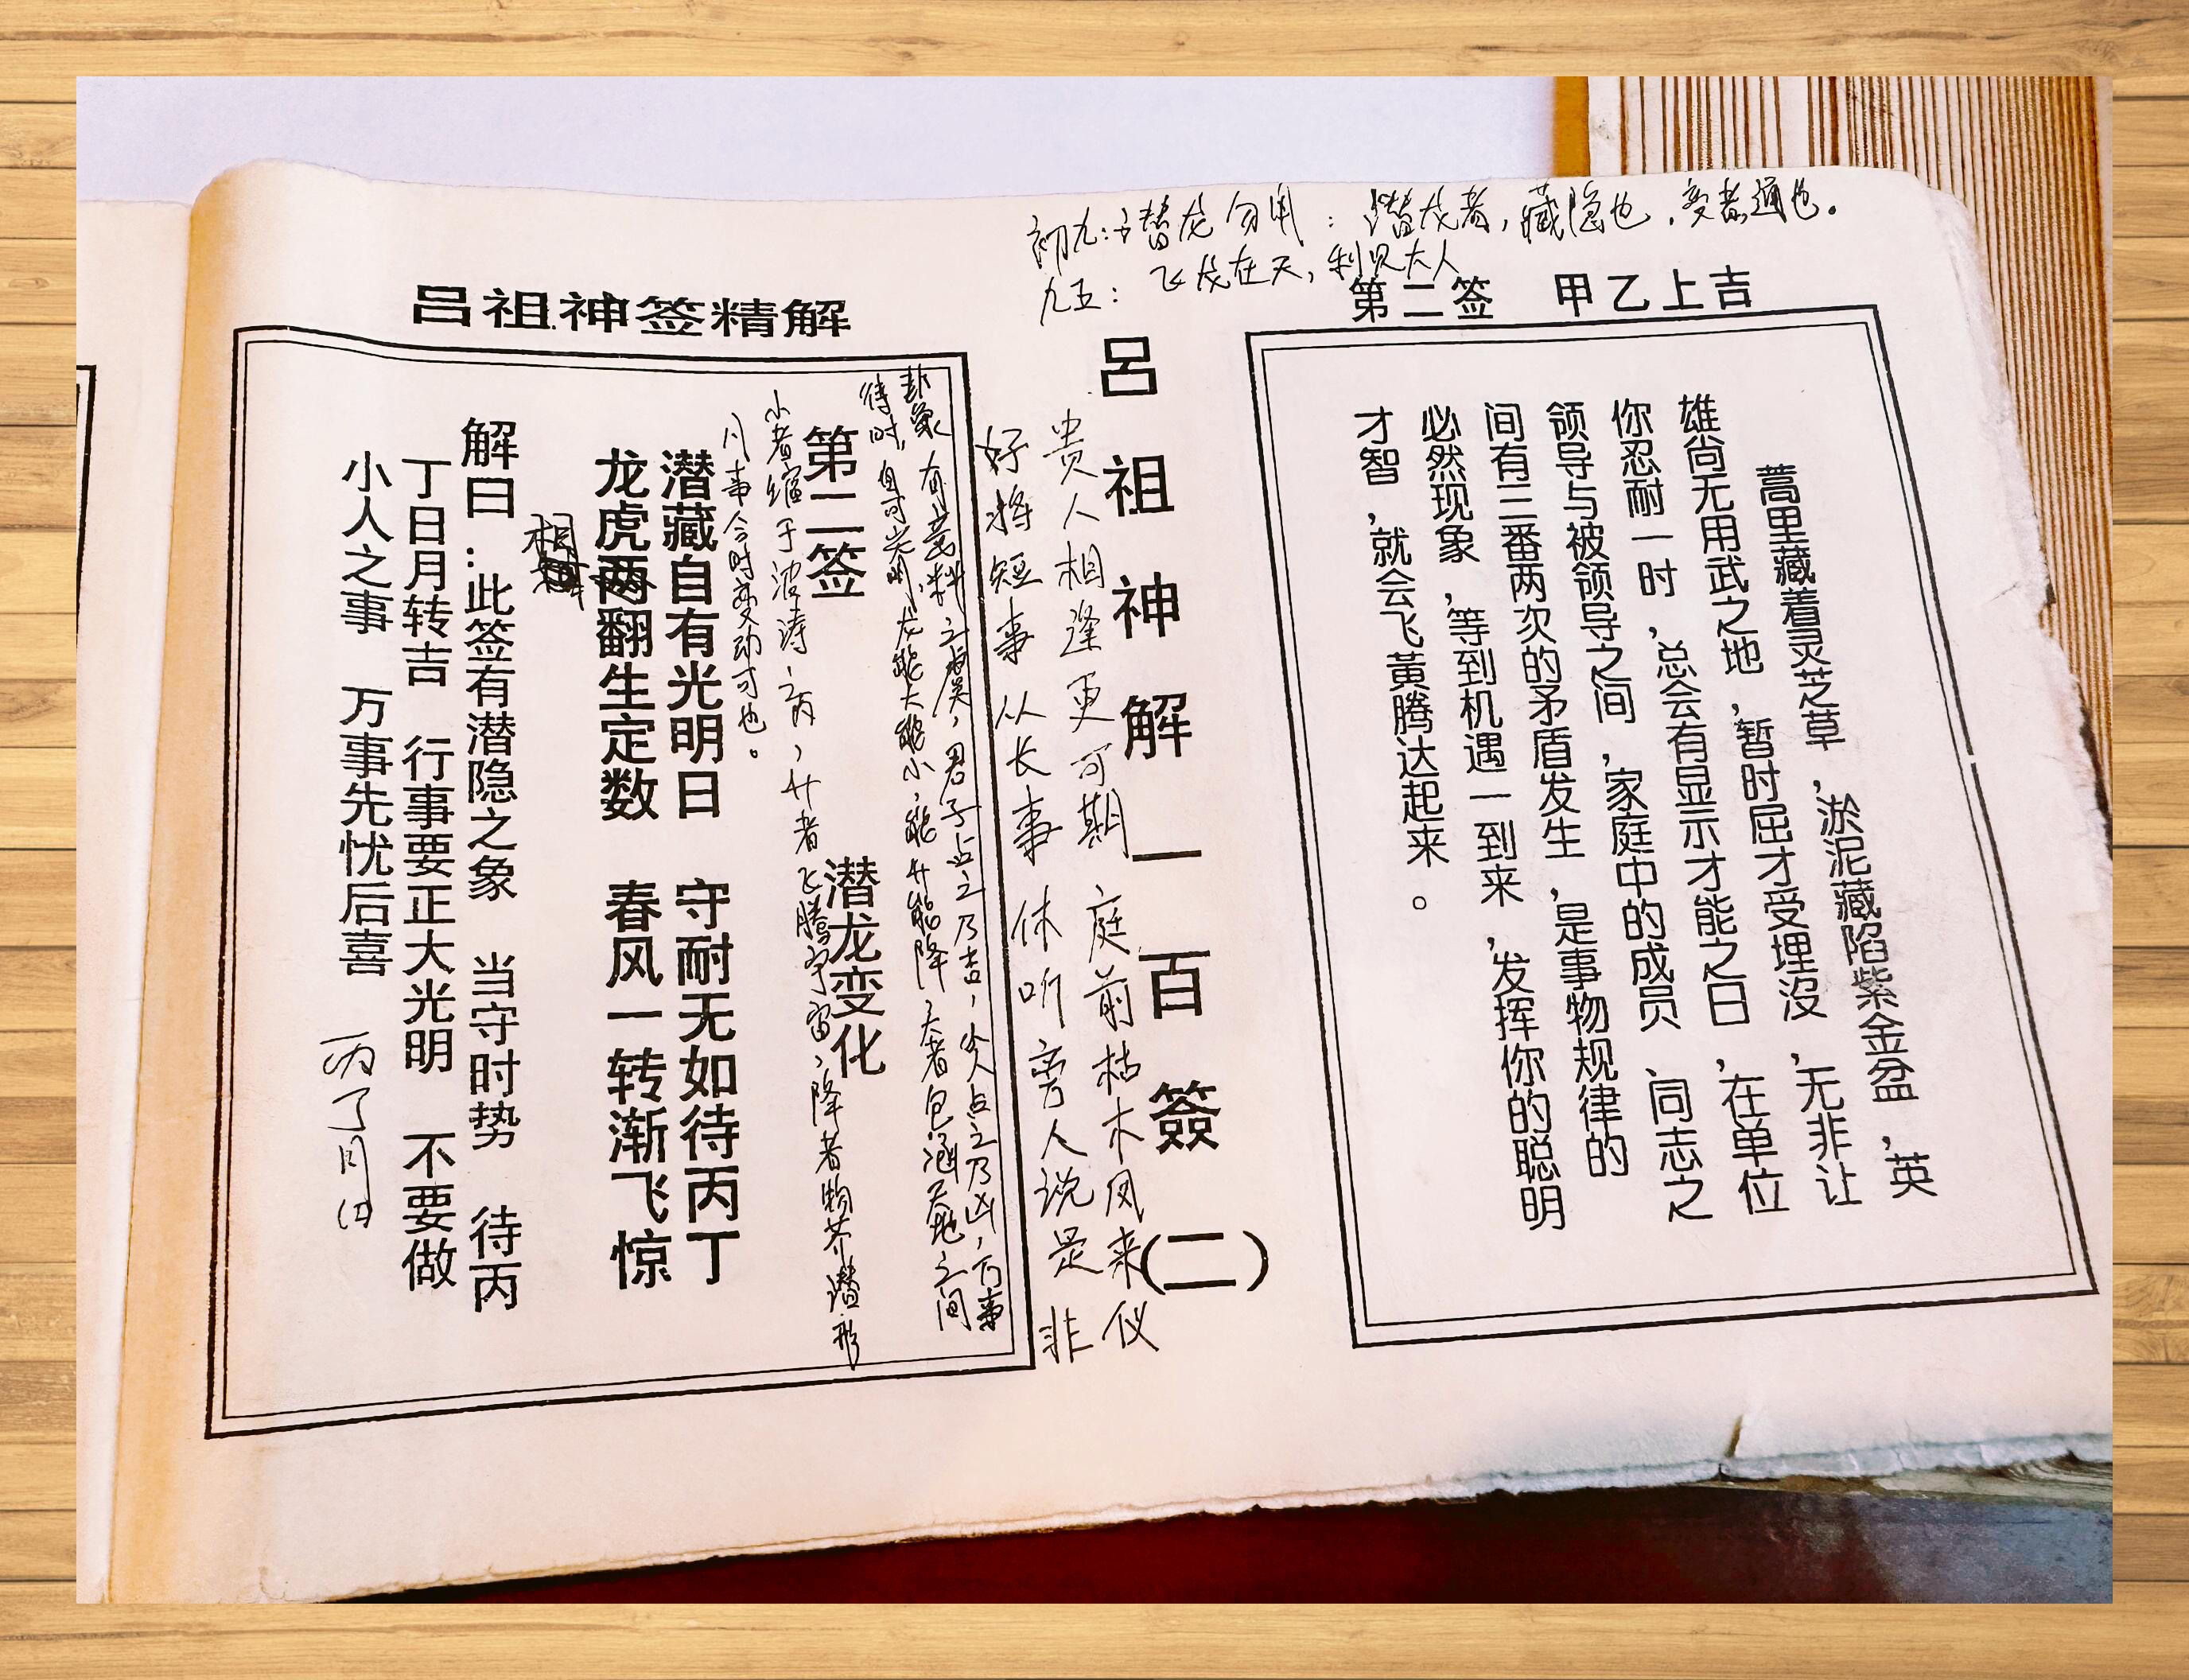 初九:潜龙勿用：潜龙者，藏隐也，变者通也。
九五：飞龙在天，利见大人
第二签 甲乙上吉
蒿里藏着灵芝草，淤泥藏陷紫金盆，英
雄尚无用武之地，暂时屈才受埋没，无非让
你忍耐一时，总会有显示才能之日，在单位
领导与被领导之间，家庭中的成员、同志之
间有三番两次的矛盾发生，是事物规律的
必然现象，等到机遇一到来，发挥你的聪明
才智，就会飞黄腾达起来。
吕祖神解一百簽(二)
贵人相逢更可期 庭前枯木凤来仪
好将短事从长事 休听旁人说是非
吕祖神签精解
卦象有莫料之，君子占之乃吉，小人占之乃凶，万事
待时，自可光明，龙能大能小，能升能降，大者包涵天地之间
第二签 潜龙变化
小者缩于波涛之内，升者飞腾宇宙，降者物芥潜形
凡事令时变动可也。
潜藏自有光明日 守耐无如待丙丁
龙虎两翻生定数 春风一转渐飞惊
相
解曰：此签有潜隐之象 当守时势 待丙
丁日月转吉 行事要正大光明 不要做
小人之事 万事先忧后喜
丙丁月日